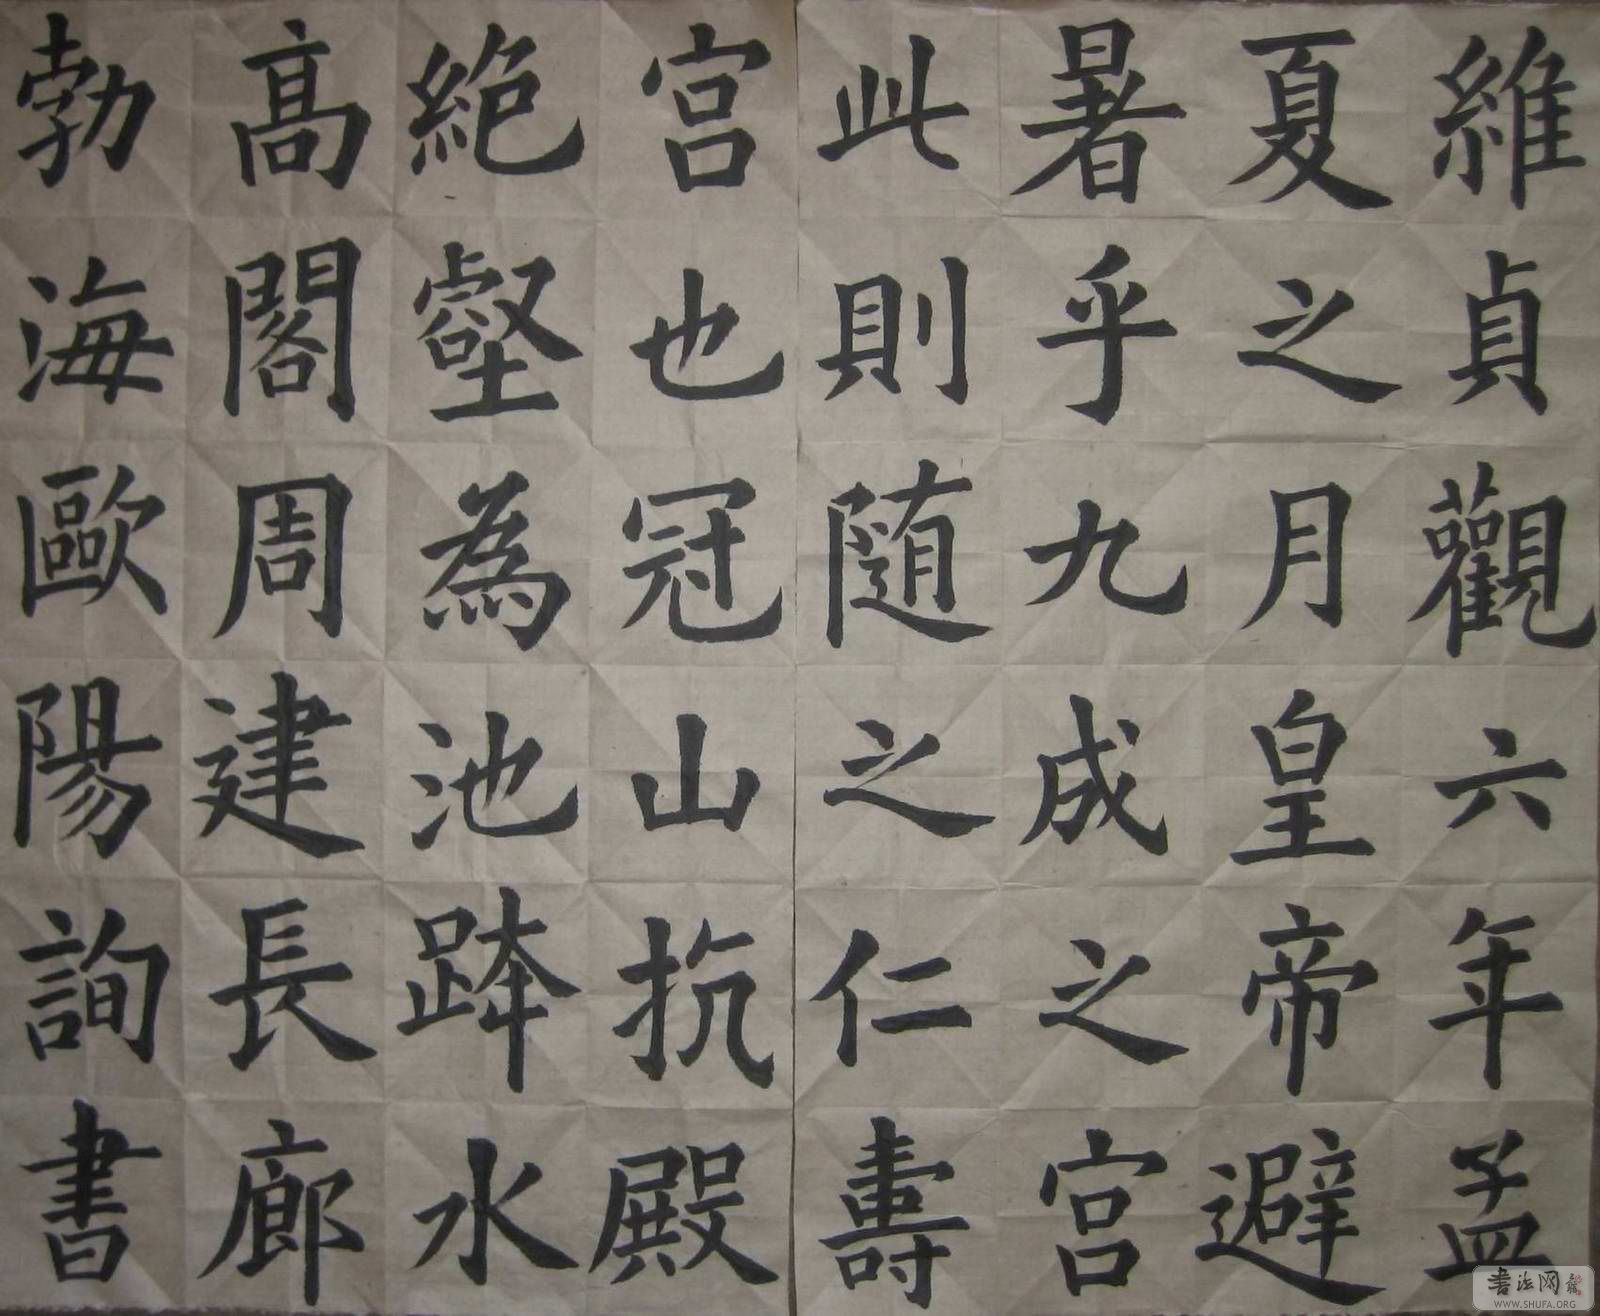 維貞觀六年孟
夏之月皇帝避
暑乎九成之宫
此則随之仁壽
宫也冠山抗殿
絶壑為池跨水
髙閣周建長廊
勃海歐陽詢書
书法网
WWW.SHUFA.ORG